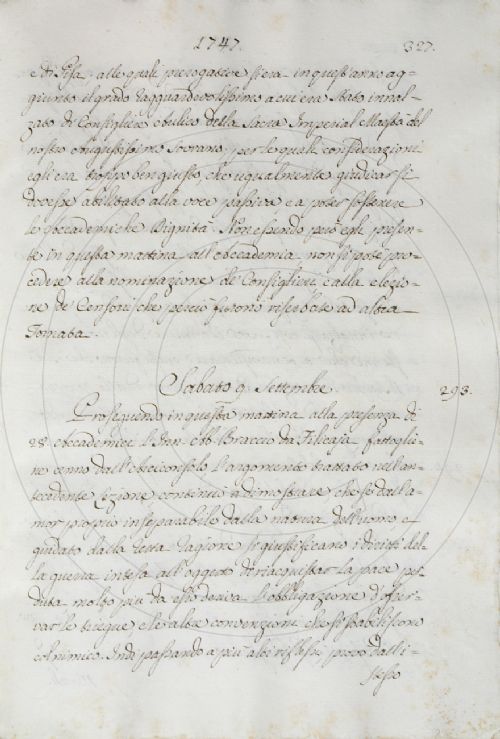 1747.
327.
e di Pisa, alle quali prerogative s'era in quest'anno ag-
giunto il grado ragguardevolissimo a cui era stato innal-
zato di Consigliere Aulico della Sacra Imperial Maestà del
nostro Augustissimo Sovrano, per le quali considerazioni
egli era troppo ben giusto, che ugualmente giudicar si
dovesse abilitato alla voce passiva e a poter sostenere
le Accademiche Dignità. Non essendo però egli presen-
te in questa mattina all'Accademia non si potè pro-
cedere alla nominazione de' Consiglieri e alla elezio-
ne de' Censori che perciò furono riserbate ad altra
Tornata.
Sabato 9. Settembre
293.
Proseguendo in questa mattina alla presenza di
28. Accademici l'Inn. Ab. Braccio da Filicaja, fattogli-
ne cenno dall'Arciconsolo, l'argomento trattato nell'an-
tecedente Lezione continuò a dimostrare che se dall'a-
mor proprio inseparabile dalla natura dell'uomo e
guidato dalla retta ragione si giustificano i diritti del-
la guerra intesa all'oggetto di riacquistar la pace per-
duta molto più da esso deriva l'obbligazione d'osser-
var le tregue, e le altre convenzioni che si stabiliscono
col nimico. Indi passando a più alti riflessi provò dall'i-
stesso